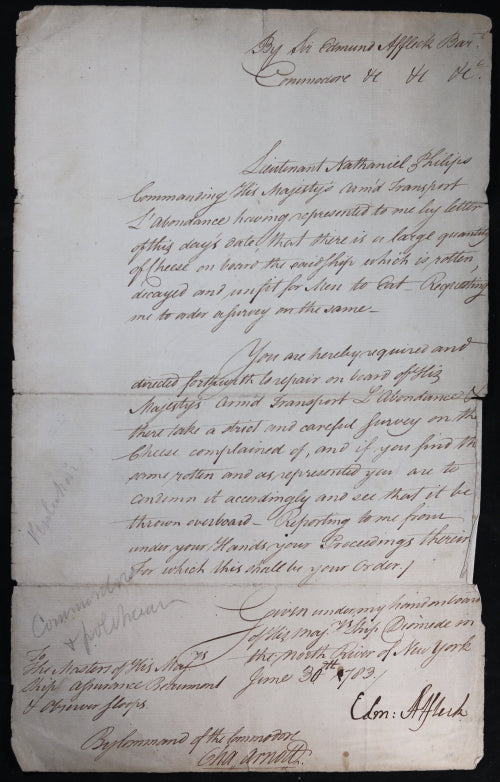 By Sir Edmund Affleck Bart
Commodore &c &c &c.
Lieutenant Nathaniel Philips
Commanding His Majesty's Arm'd Transport
L'abondance having represented to me by letter
of this days date, that there is a large quantity
of Cheese on board the said Ship which is rotten,
decayed and unfit for Men to Eat - Requesting
me to order a Survey on the same -
You are hereby required and
directed forthwith to repair on board of His
Majesty's Arm'd Transport L'abondance &
there take a strict and careful Survey on the
Cheese complained of, and if you find the
same rotten and as represented you are to
condemn it accordingly and see that it be
thrown overboard - Reporting to me from
under your Hands your Proceedings therein
For which this shall be your Order /
Given under my hand on board
of His Majys Ship Diomede in
the North River of New York
June 30th 1783 /
Edm: Affleck
To
The Masters of His Majys
Ship Assurance Beaumont
& Observer Sloops.
By Command of the Commodore
Commodore
&